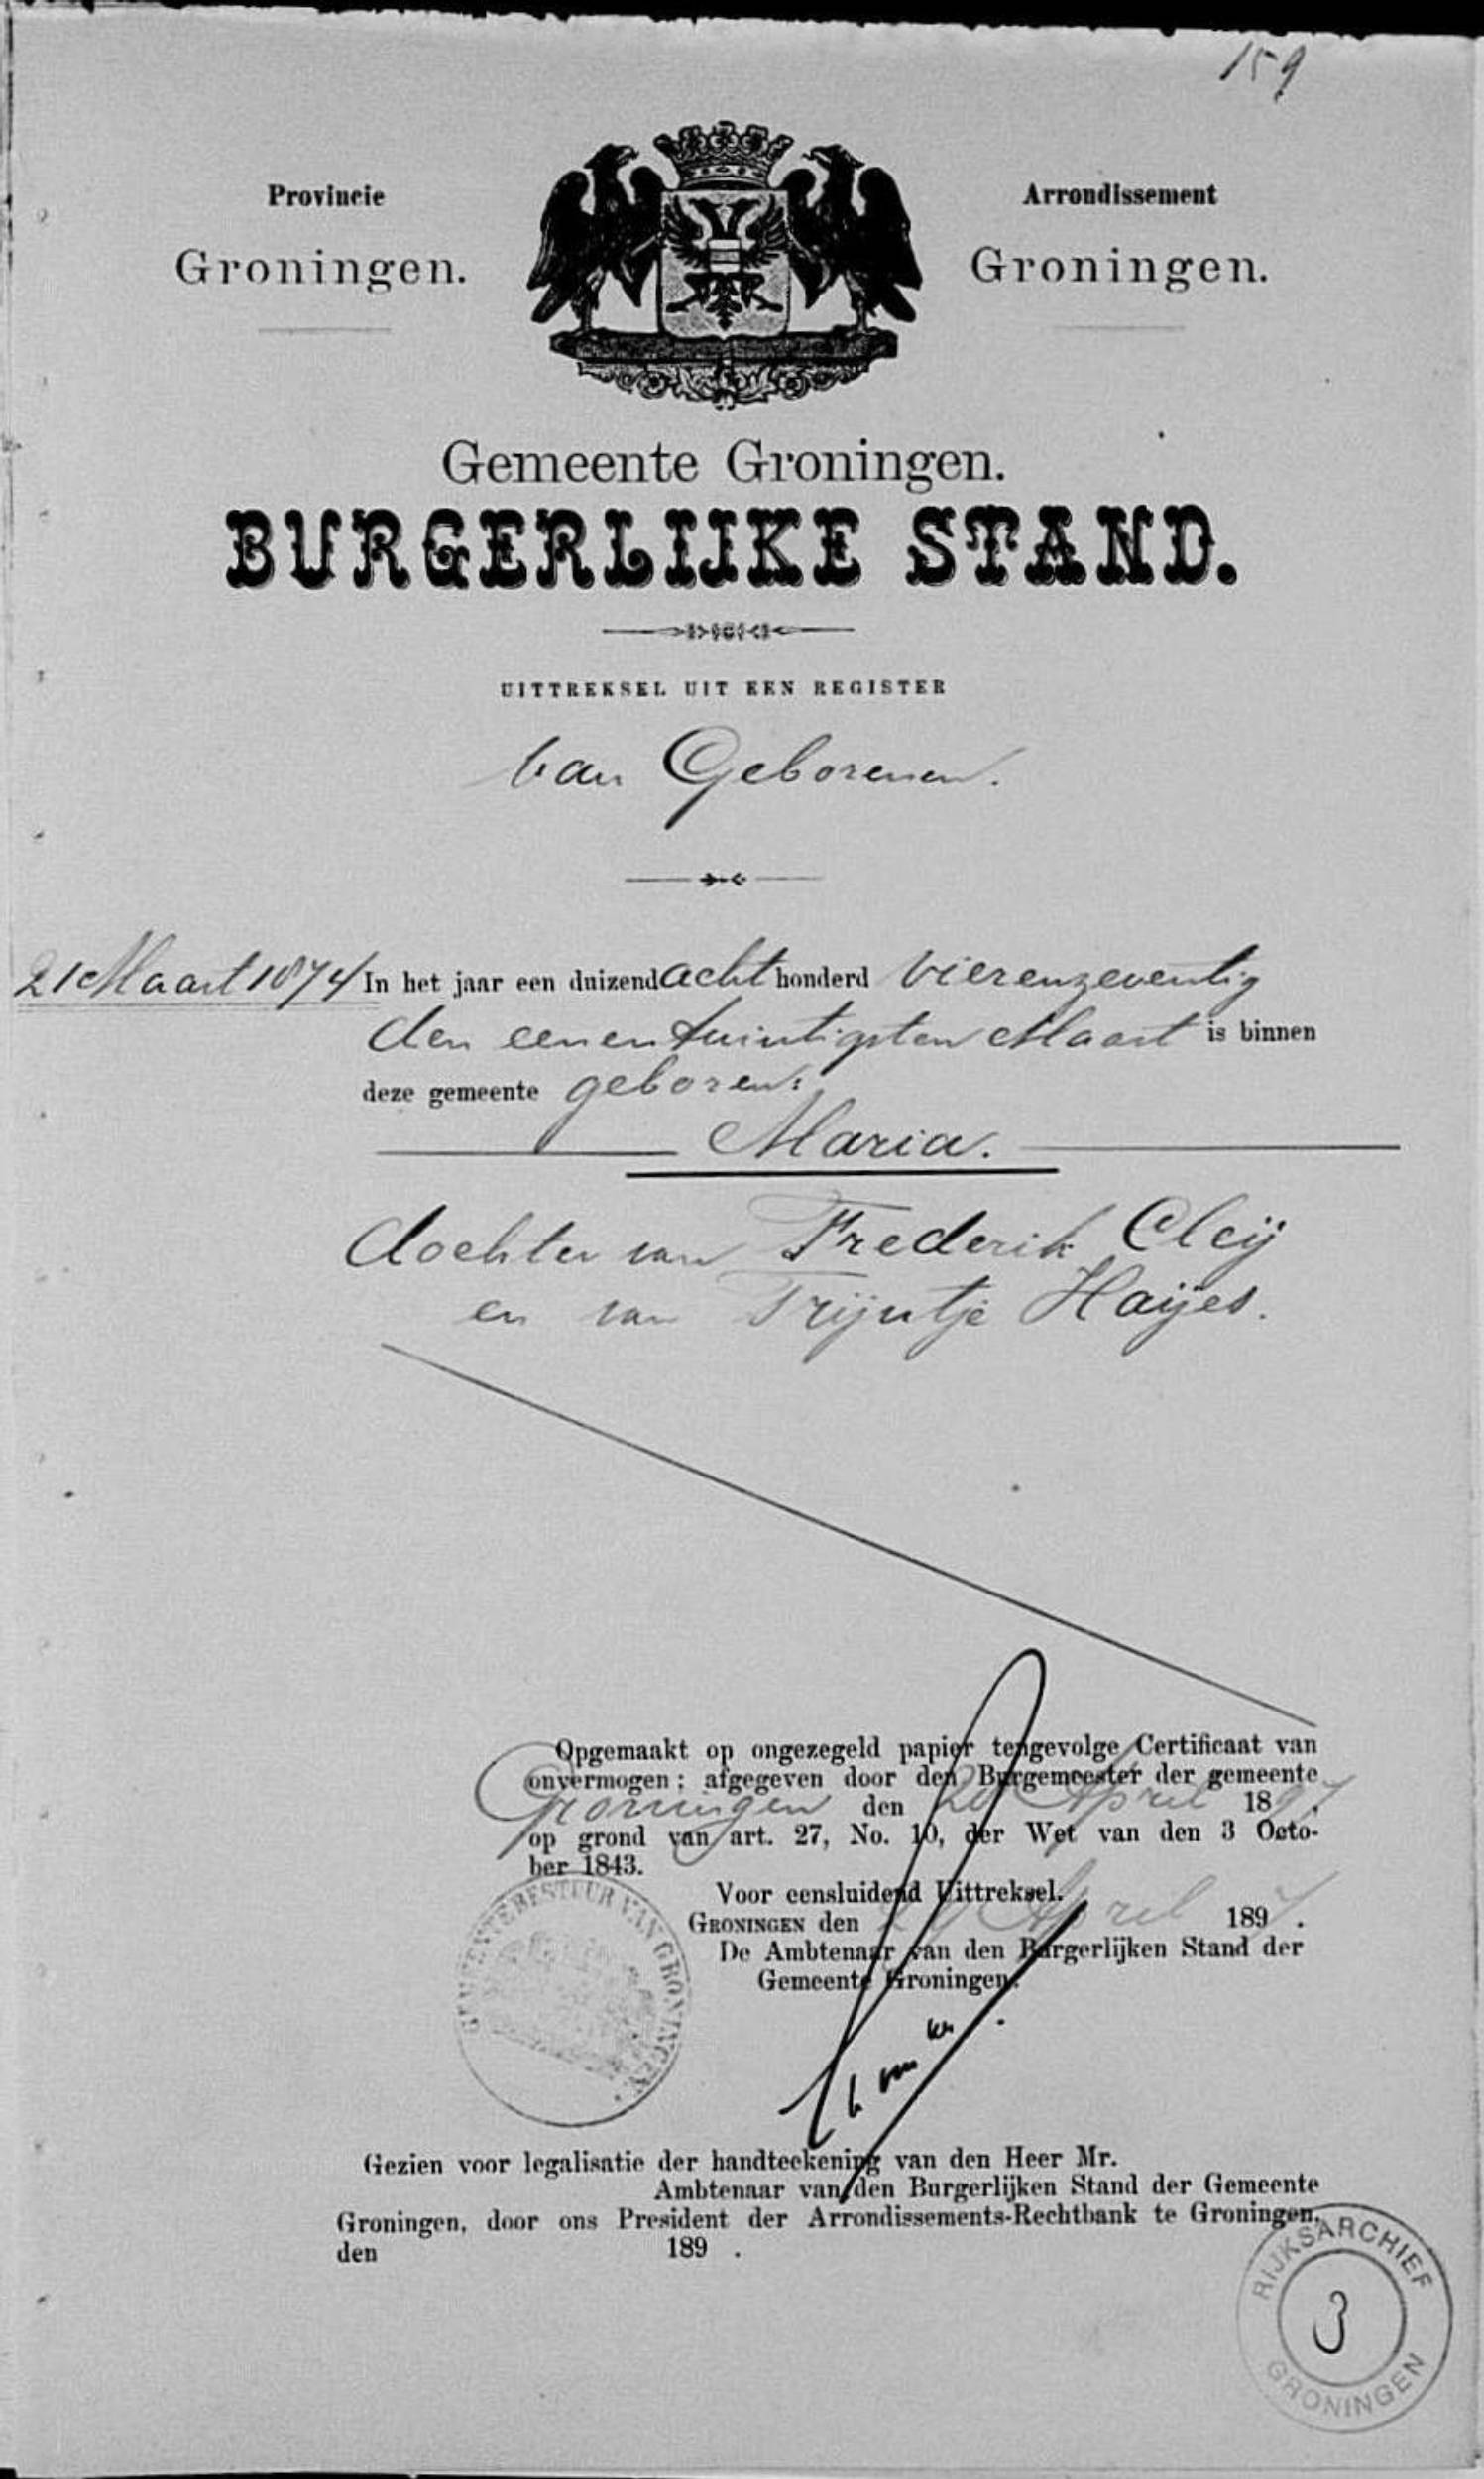 159
Provincie
Groningen.
Arrondissement
Groningen.
Gemeente Groningen.
BURGERLIJKE STAND.
UITTREKSEL UIT EEN REGISTER
van Geborenen.
21 Maart 1874
In het jaar een duizend acht honderd vierenzeventig
den eenentwintigsten Maart is binnen
deze gemeente geboren:
Maria.
dochter van Frederik Cleij
en van Trijntje Haijes.
Opgemaakt op ongezegeld papier tengevolge Certificaat van
onvermogen; afgegeven door den Burgemeester der gemeente
Groningen den 20 April 1897.
op grond van art. 27, No. 10, der Wet van den 3 Octo-
ber 1843.
Voor eensluidend Uittreksel.
GRONINGEN den April 1897.
De Ambtenaar van den Burgerlijken Stand der
Gemeente Groningen.
GEMEENTEBESTUUR VAN GRONINGEN.
Gezien voor legalisatie der handteekening van den Heer Mr.
Ambtenaar van den Burgerlijken Stand der Gemeente
Groningen, door ons President der Arrondissements-Rechtbank te Groningen,
den 189 .
RIJKSARCHIEF
3
GRONINGEN